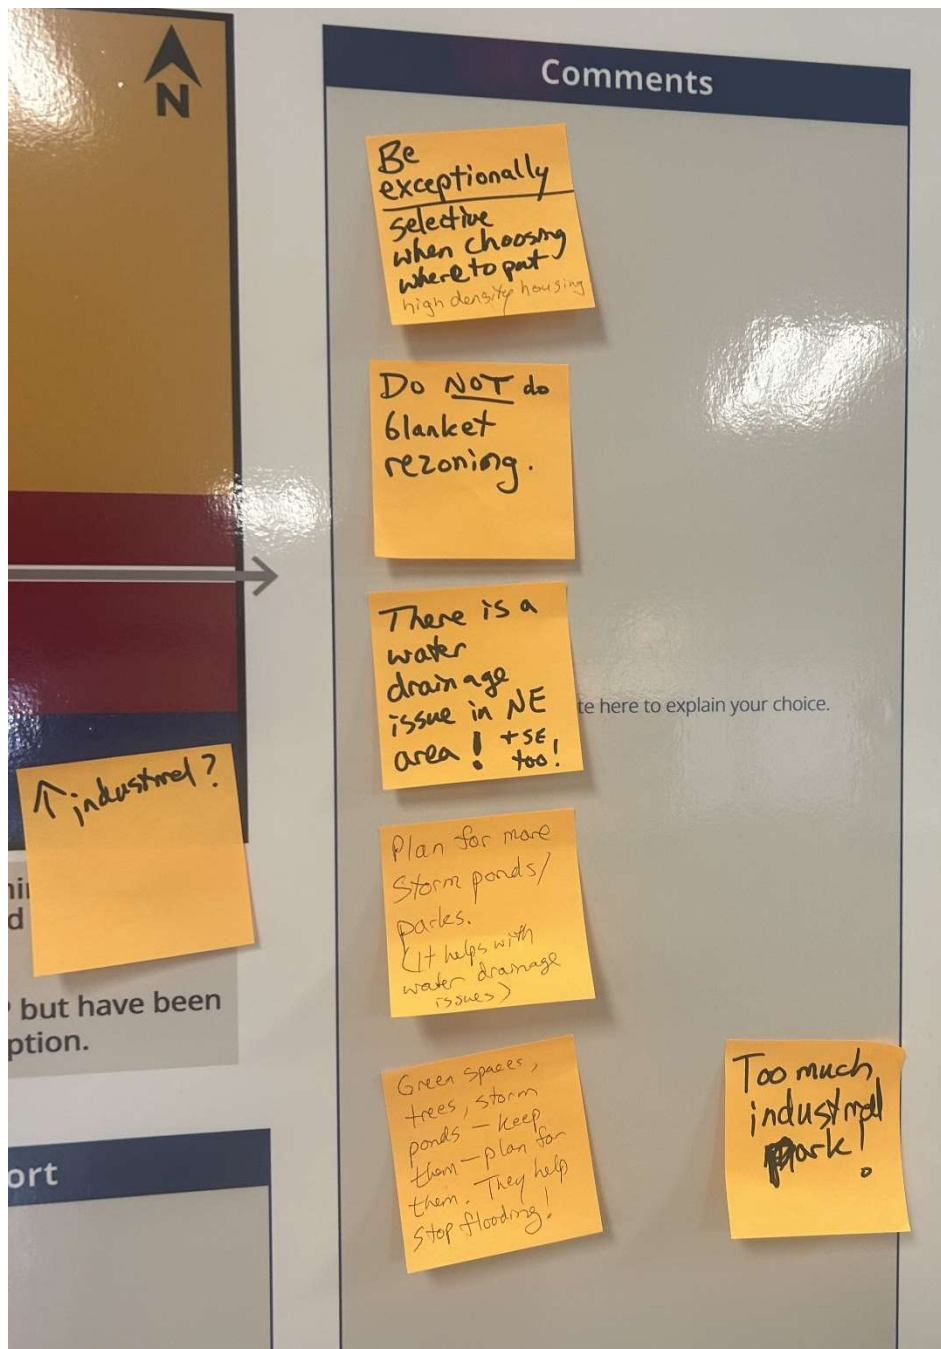 N
Comments
Be
exceptionally
selective
when choosing
where to put
high density housing.
Do NOT do
blanket
rezoning.
There is a
water
drainage
issue in NE
area! + SE
too!
te here to explain your choice.
↑ industrial?
Plan for more
Storm ponds/
parks.
(It helps with
water drainage
issues)
but have been
ption.
Green spaces,
trees, storm
ponds - keep
them - plan for
them. They help
stop flooding!
Too much
industrial
park!
ort